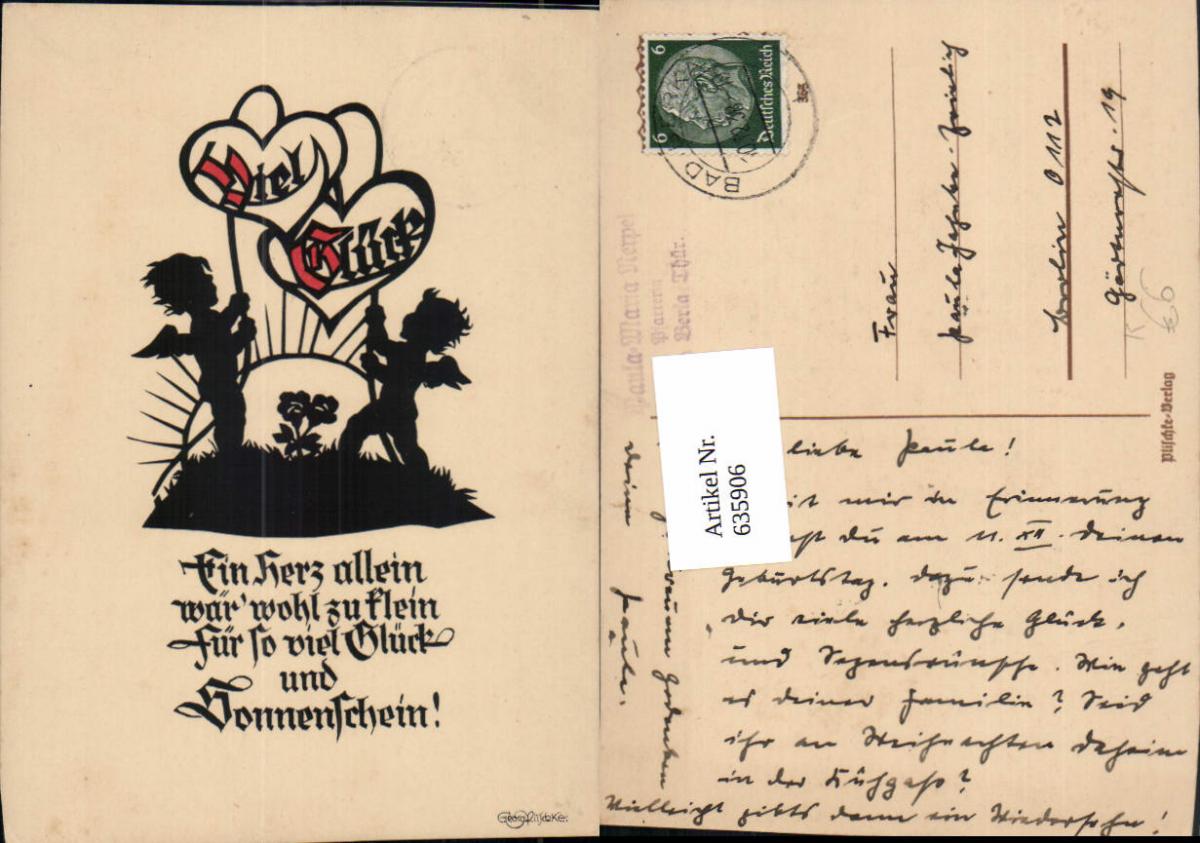 Viel
Glück
Ein Herz allein
wär' wohl zu klein
Für so viel Glück
und
Sonnenschein!
Georg Plischke.
6 6
Deutsches Reich
BAD
365
Paula-Maria
Pfarrerin
Berka Thür.
Frau
Paula
Berlin O 112
Gärtnerstr. 19
K
€6
Plischke-Verlag
Artikel Nr.
635906
liebe Paula!
mir in Erinnerung
Du am 11. XII. Deinen
Geburtstag. Dazu sende ich
Dir viele herzliche Glück-
und Segenswünsche. Wie geht
es Deiner Familie? Seid
ihr an Weihnachten daheim
in der
Vielleicht gibts dann ein Wiedersehn!
Gedenken
Deine Paula.